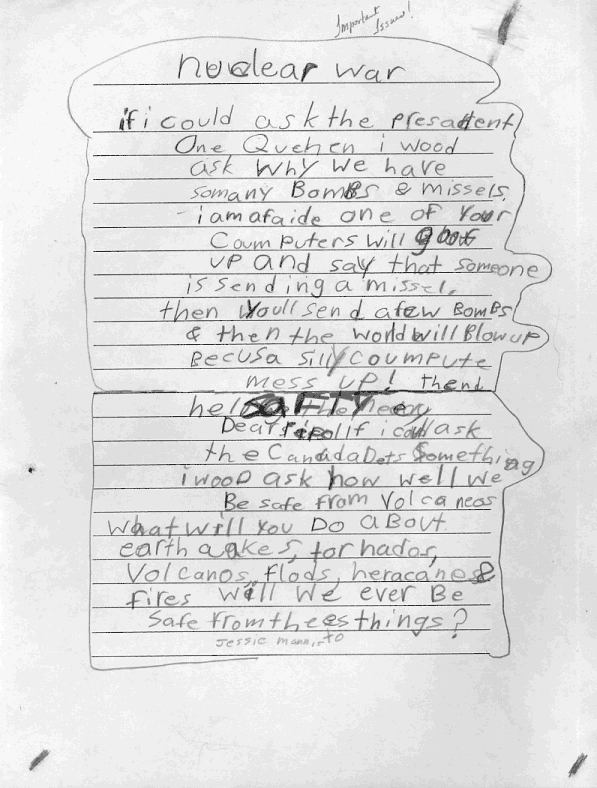 Important
Issues!
nuclear war
if i could ask the presadent
One Quehen i wood
ask Why We have
somany BomBs & missels.
i amafaide one of Your
Coumputers will goof
up and say that someone
is sending a missel.
then Youll send afew Bombs
& then the world will Blow up
Becusa silly coumpute
mess up! thend
SAFTY
Dear if i could ask
the CanadaDets Something
i wood ask how well we
Be safe from Volcaneos
What will You Do aBout
earth aqkes, tornados,
Volcanos, flods, heracanes &
fires Will We ever Be
Safe from thees things?
Jessie mannisto